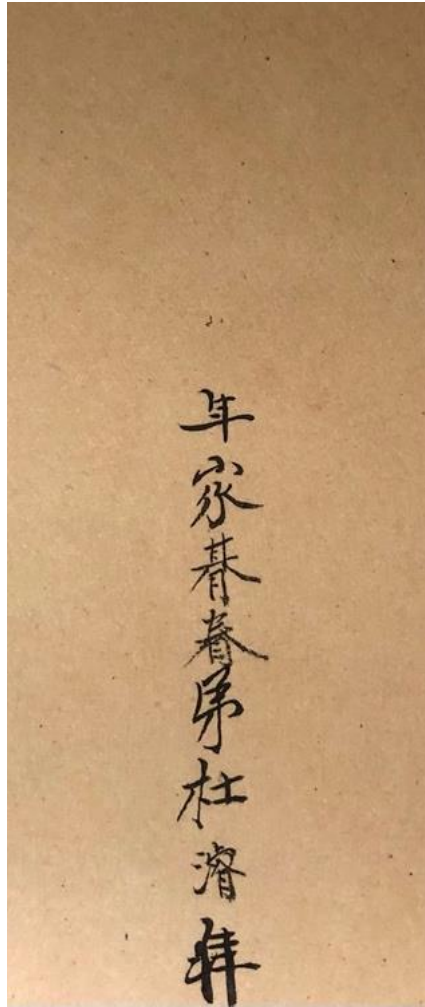 年家朞眷弟杜濬拜